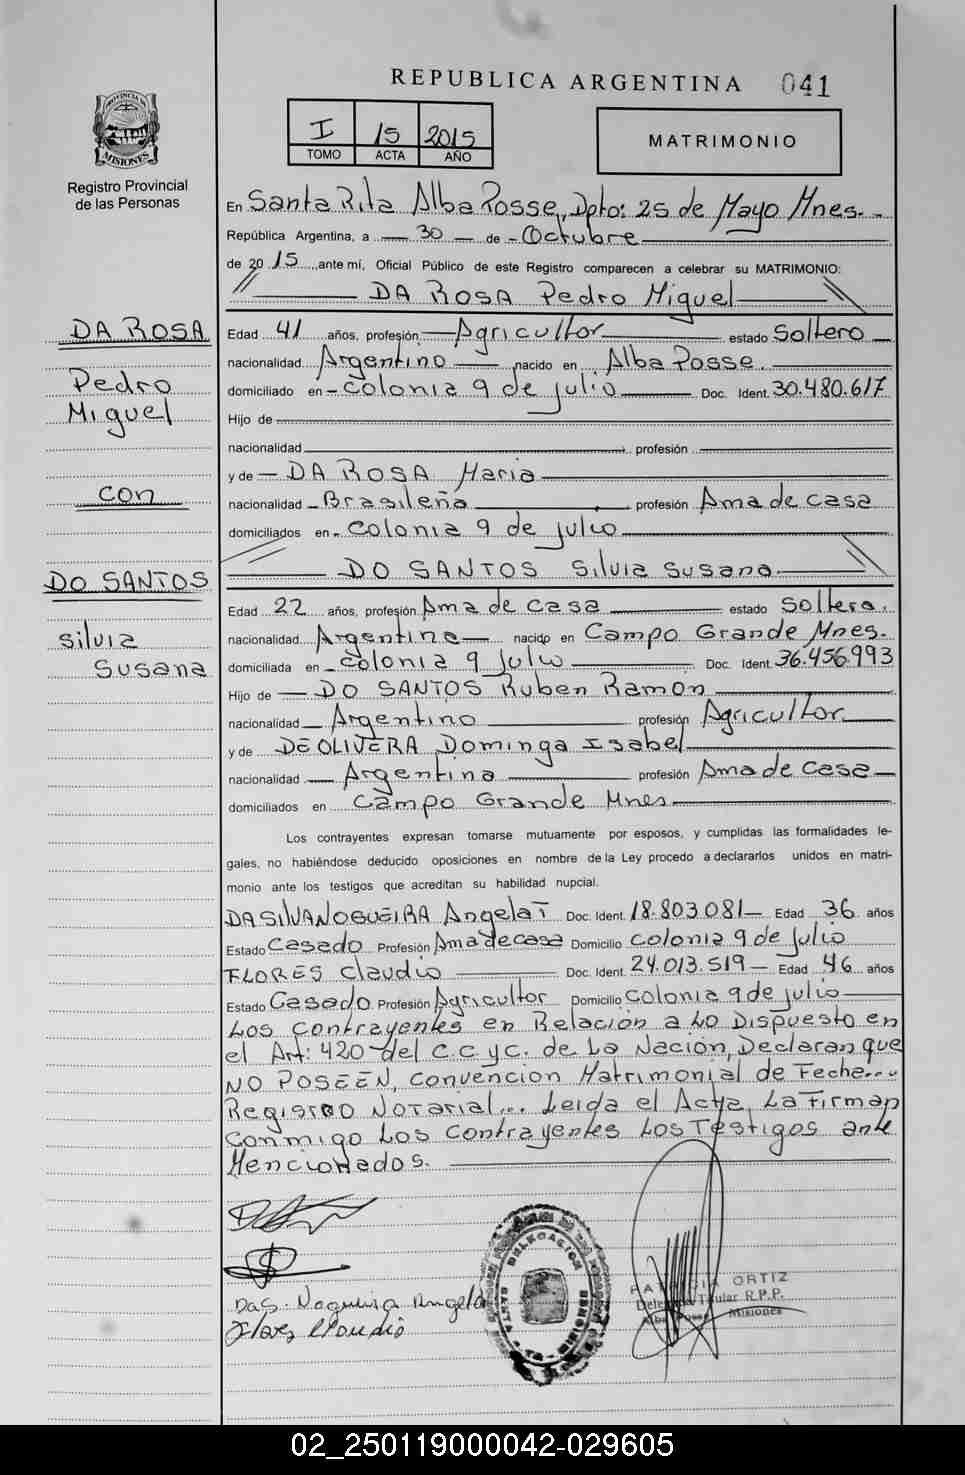 REPUBLICA ARGENTINA 041
I 15 2015
TOMO ACTA AÑO
MATRIMONIO
PROVINCIA DE
MISIONES
Registro Provincial
de las Personas
En Santa Rita Alba Posse, Dpto: 25 de Mayo Mnes.-
República Argentina, a — 30 — de - Octubre
de 2015, ante mí, Oficial Público de este Registro comparecen a celebrar su MATRIMONIO:
DA ROSA Pedro Miguel
DA ROSA
Pedro
Miguel
con
DO SANTOS
Silvia
Susana
Edad 41 años, profesión Agricultor estado Soltero
nacionalidad Argentino nacido en Alba Posse.
domiciliado en - colonia 9 de julio Doc. Ident. 30.480.617
Hijo de
nacionalidad profesión
y de — DA ROSA Maria
nacionalidad - Brasileña profesión Ama de casa
domiciliados en - colonia 9 de julio
DO SANTOS Silvia Susana
Edad 22 años, profesión Ama de casa estado Soltera.
nacionalidad Argentina nacido en Campo Grande Mnes.
domiciliada en - colonia 9 Julio Doc. Ident. 36.456.993
Hijo de — DO SANTOS Ruben Ramón
nacionalidad — Argentino profesión Agricultor
y de DE OLIVERA Dominga Isabel
nacionalidad — Argentina profesión Ama de casa
domiciliados en Campo Grande Mnes
Los contrayentes expresan tomarse mutuamente por esposos, y cumplidas las formalidades le-
gales, no habiéndose deducido oposiciones en nombre de la Ley procedo a declararlos unidos en matri-
monio ante los testigos que acreditan su habilidad nupcial.
DA SILVA NOGUEIRA Angela T Doc. Ident. 18.803.081 — Edad 36 años
Estado Casado Profesión Ama de casa Domicilio colonia 9 de julio
FLORES Claudio Doc. Ident. 24.013.519 — Edad 46 años
Estado Casado Profesión Agricultor Domicilio colonia 9 de julio
Los contrayentes en Relación a Lo Dispuesto en
el Art: 420 del C.C.yC. de La Nación, Declaran que
NO POSEEN, convencion Matrimonial de Feche...
Registro Notarial... Leida el Acta, La Firman
conmigo Los contrayentes Los Testigos ante
Mencionados.
Das. Nogueira Angela
Flores Claudio
DELEGACION
PATRICIA ORTIZ
Delegada Titular R.P.P.
Alba Posse Misiones
02_250119000042-029605